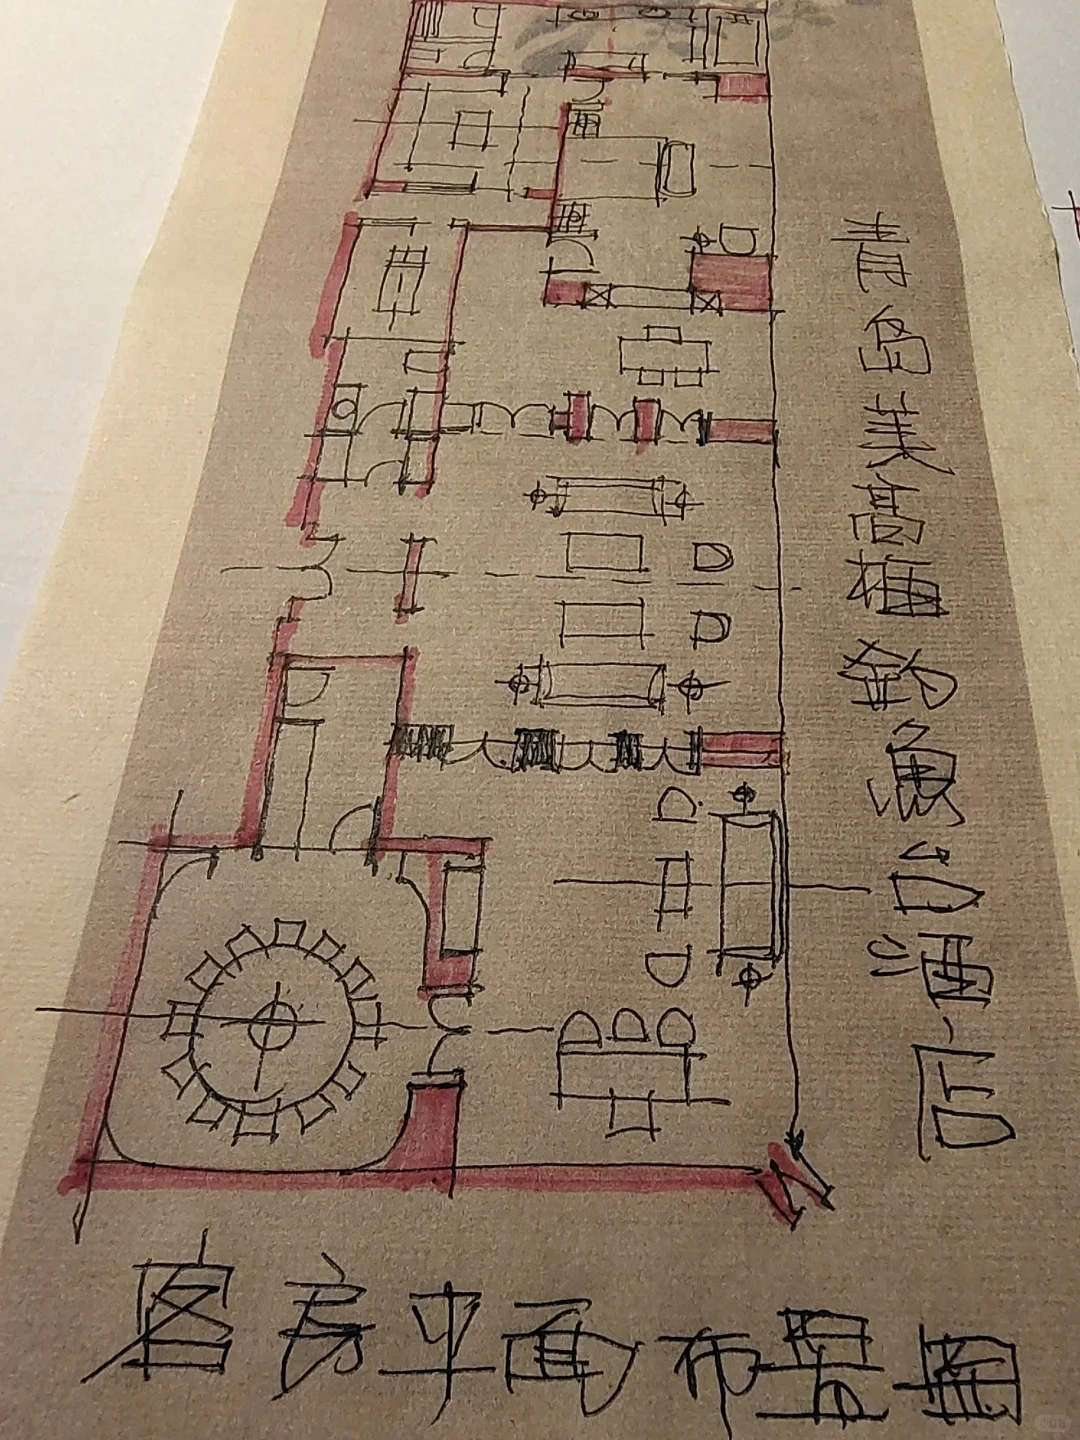 青岛美高梅钓鱼台酒店
客房平面布置图